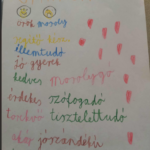 örök mosoly
segítő kéz
illemtudó
jó gyerek
kedves mosolygó
érdekes szófogadó
tisztelettudó
jószándékú